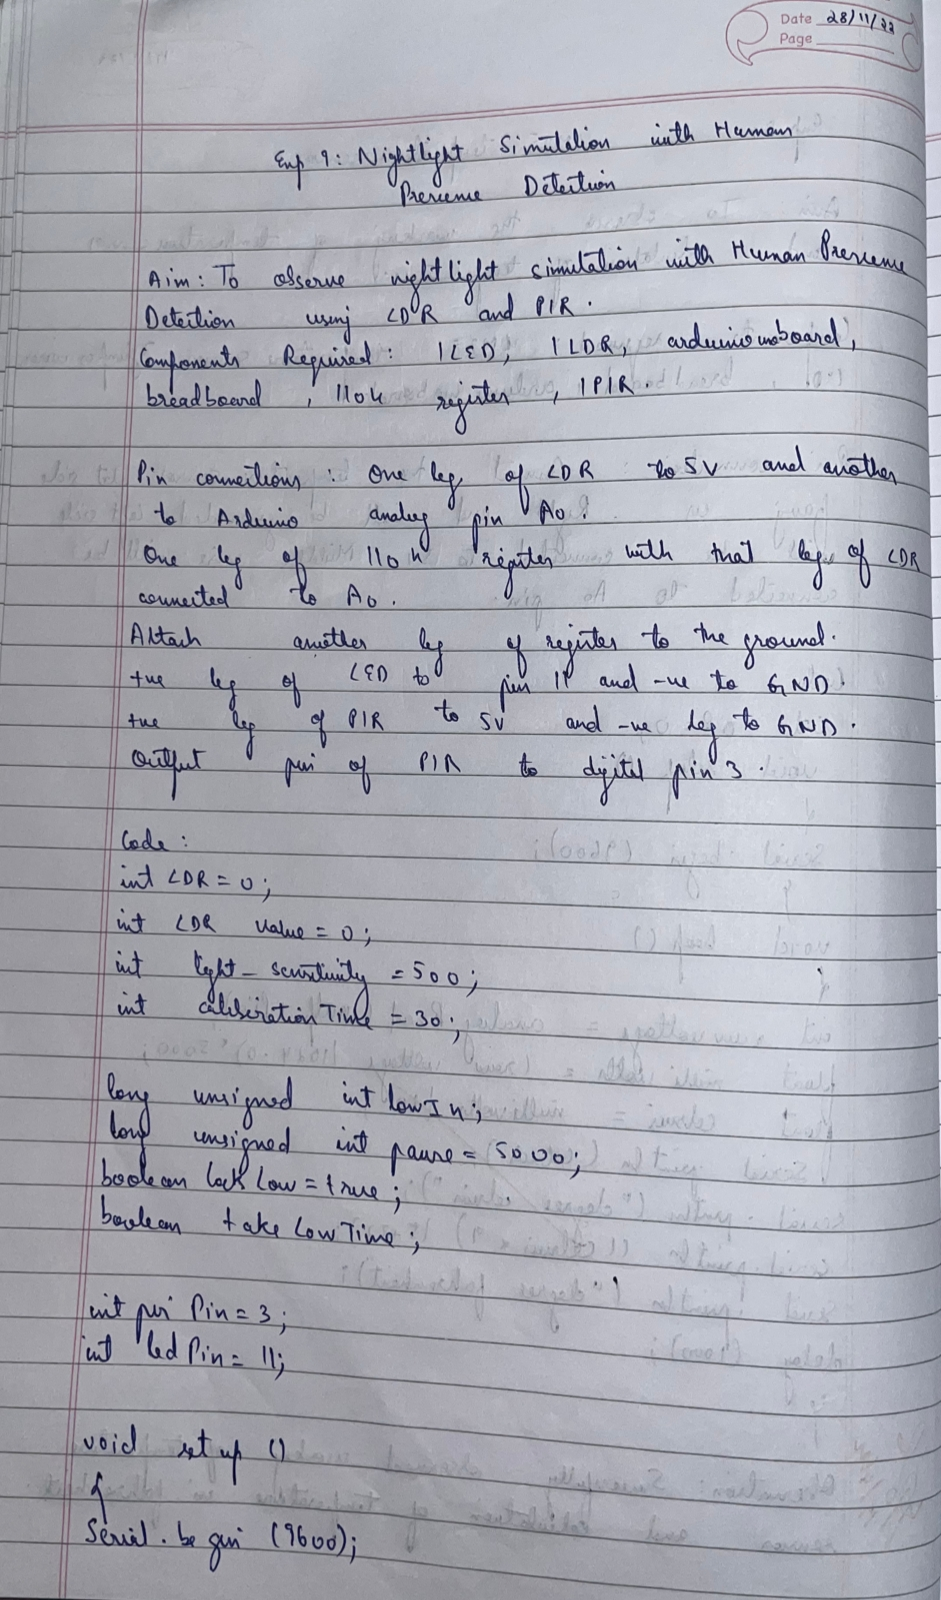 Date 28/11/22
Page
Exp 9: Nightlight Simulation with Human
Presence Detection
Aim: To observe nightlight simulation with Human Presence
Detection using LDR and PIR.
Components Required: 1 LED, 1 LDR, arduino uno board,
breadboard, 110k register, 1 PIR.
Pin connections: One leg of LDR to 5V and another
to Arduino analog pin A0.
One leg of 110k register with that leg of LDR
connected to A0.
Attach another leg of register to the ground.
+ve leg of LED to pin 11 and -ve to GND.
+ve leg of PIR to 5V and -ve leg to GND.
Output pin of PIR to digital pin 3.
Code:
int LDR = 0;
int LDR value = 0;
int light_sensitivity = 500;
int caliberation Time = 30;
long unsigned int low In;
long unsigned int pause = 5000;
boolean lock Low = true;
boolean take Low Time;
int pir Pin = 3;
int led Pin = 11;
void set up ()
{
Serial.begin (9600);